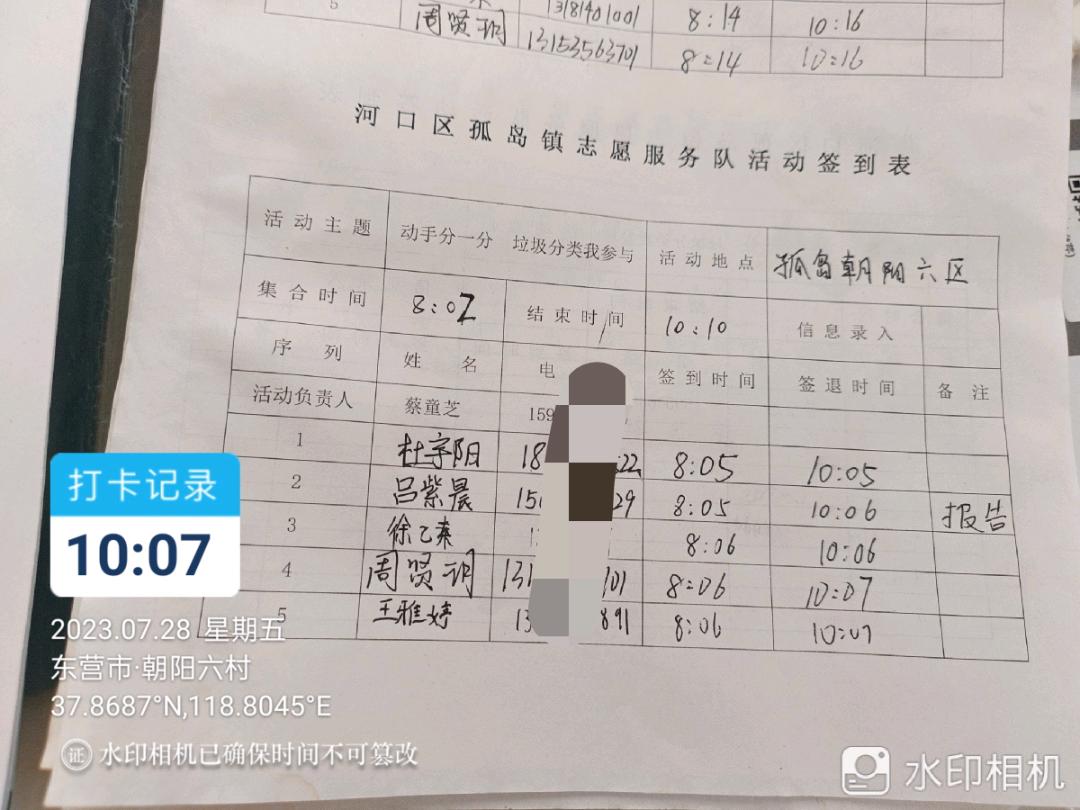 5
13181401001 8:14 10:16
周贤玥 13153563701 8:14 10:16
河口区孤岛镇志愿服务队活动签到表
活动主题 动手分一分 垃圾分类我参与 活动地点 孤岛朝阳六区
集合时间 8:02 结束时间 10:10 信息录入
序列 姓名 电 签到时间 签退时间 备注
活动负责人 蔡童芝 159
1 杜宇阳 18 22 8:05 10:05
2 吕紫晨 150 29 8:05 10:06 报告
3 徐乙 8:06 10:06
4 周贤玥 131 701 8:06 10:07
5 王雅婷 13 891 8:06 10:07
打卡记录
10:07
2023.07.28 星期五
东营市·朝阳六村
37.8687°N,118.8045°E
证 水印相机已确保时间不可篡改
水印相机